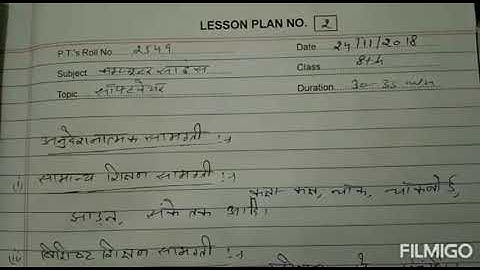 LESSON PLAN NO. 2
P.T.'s Roll No 2549 Date 24/11/2018
Subject कम्प्यूटर साइंस Class 8th
Topic सॉफ्टवेयर Duration 30-35 min
अनुदेशनात्मक सामग्री :→
(i) सामान्य शिक्षण सामग्री :→
कक्षा कक्ष, चॉक, चॉकबोर्ड,
झाड़न, संकेतक आदि।
(ii) विशिष्ट शिक्षण सामग्री :→
FILMIGO